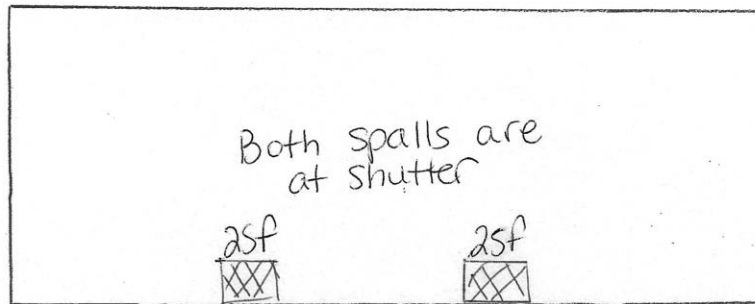 Both spalls are
at shutter
2sf 2sf